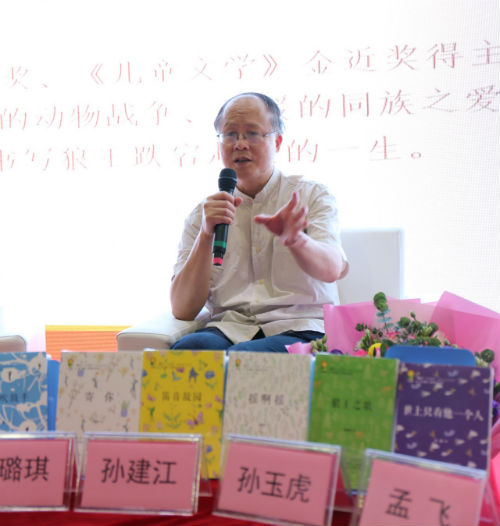 奖、《儿童文学》金近奖得主
的动物战争、的同族之爱
书写狼王跌宕的一生。
寄你
笛音故园
摇啊摇
狼王之歌
世上只有他一个人
璐琪
孙建江
孙玉虎
孟飞